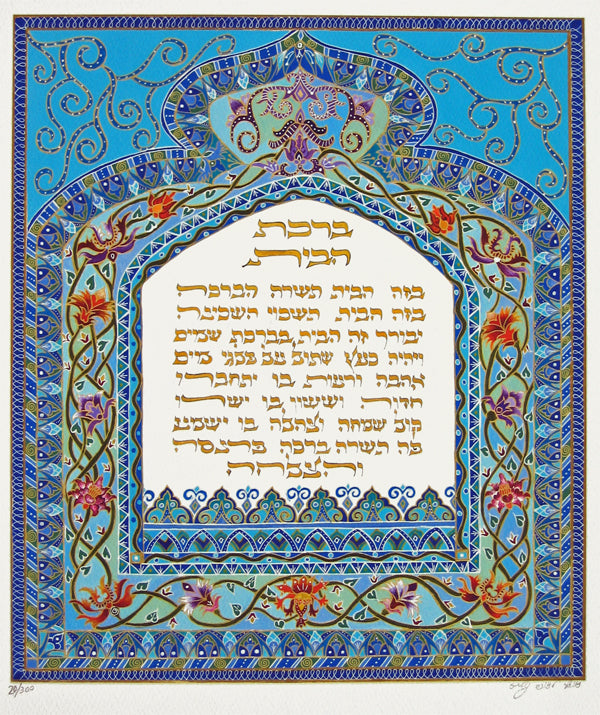 ברכת
הבית
בזה הבית תשרה הברכה
בזה הבית תשכון השכינה
יבורך זה הבית בברכת שמים
ויהיה כעץ שתול על פלגי מים
אהבה ורעות בו יתחברו
חדוה וששון בו ישרו
קול שמחה וצהלה בו ישמע
פה תשרה ברכה פרנסה
והצלחה